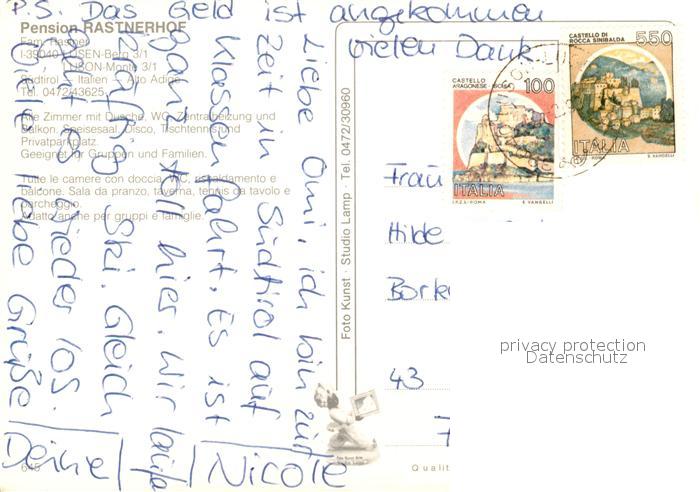 P.S. Das Geld ist angekommen
vielen Dank.
Pension RASTNERHOF
Fam.
I-39040 LÜSEN-Berg 3/1
LUSON-Monte 3/1
Südtirol — Italien — Alto Adige
Tel. 0472/43625
Alle Zimmer mit Dusche, WC, Zentralheizung und
Balkon, Speisesaal, Disco, Tischtennis und
Privatparkplatz.
Geeignet für Gruppen und Familien.
Tutte le camere con doccia, WC, riscaldamento e
balcone. Sala da pranzo, taverna, tennis da tavolo e
parcheggio.
Adatto anche per gruppi e famiglie.
Liebe Omi, ich bin zur
Zeit in Südtirol auf
Klassenfahrt. Es ist
ganz toll hier. Wir laufen
Ski. Gleich
geht es wieder los.
Viele liebe Grüße
Deine
Nicole
645
Foto Kunst · Studio Lamp · Tel. 0472/30960
CASTELLO
ARAGONESE - ISCHIA
100
ITALIA
I.P.Z.S. - ROMA E. VANGELLI
CASTELLO DI
ROCCA SINIBALDA
550
ITALIA
ROMA E. VANGELLI
Frau
Hilde
Bork
43
Qualit
privacy protection
Datenschutz